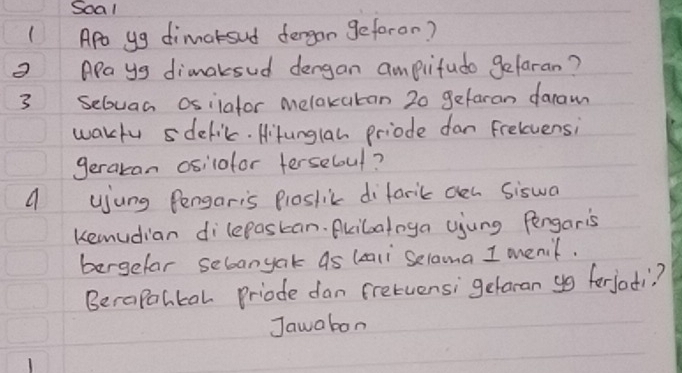 Soal
1 Apa yg dimaksud dengan getaran?
2 Apa yg dimaksud dengan amplitudo getaran?
3 Sebuah osilator melakukan 20 getaran dalam
waktu 5 detik. Hitunglah priode dan frekuensi
gerakan osilator tersebut?
4 ujung Pengaris plastik ditarik oleh siswa
kemudian dilepaskan. Akibatnya ujung Pengaris
bergetar sebanyak 45 kali selama 1 menit.
Berapahkah priode dan frekuensi getaran yg terjadi?
Jawaban
1